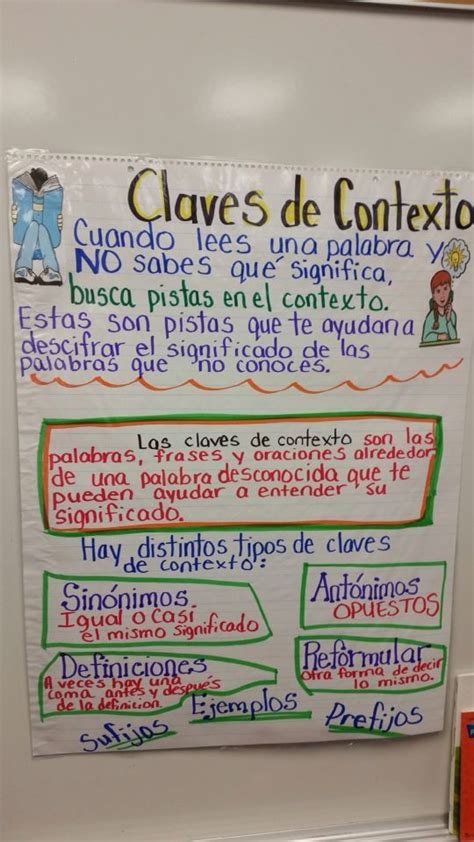 Claves de Contexto
Cuando lees una palabra y
NO sabes qué significa,
busca pistas en el contexto.
Estas son pistas que te ayudan a
descifrar el significado de las
palabras que no conoces.
Las claves de contexto son las
palabras, frases y oraciones alrededor
de una palabra desconocida que te
pueden ayudar a entender su
significado.
Hay distintos tipos de claves
de contexto:
Sinónimos
Igual o casi
el mismo significado
Antónimos
OPUESTOS
Definiciones
A veces hay una
coma antes y después
de la definicion.
Reformular
Otra forma de decir
lo mismo.
Sufijos
Ejemplos
Prefijos